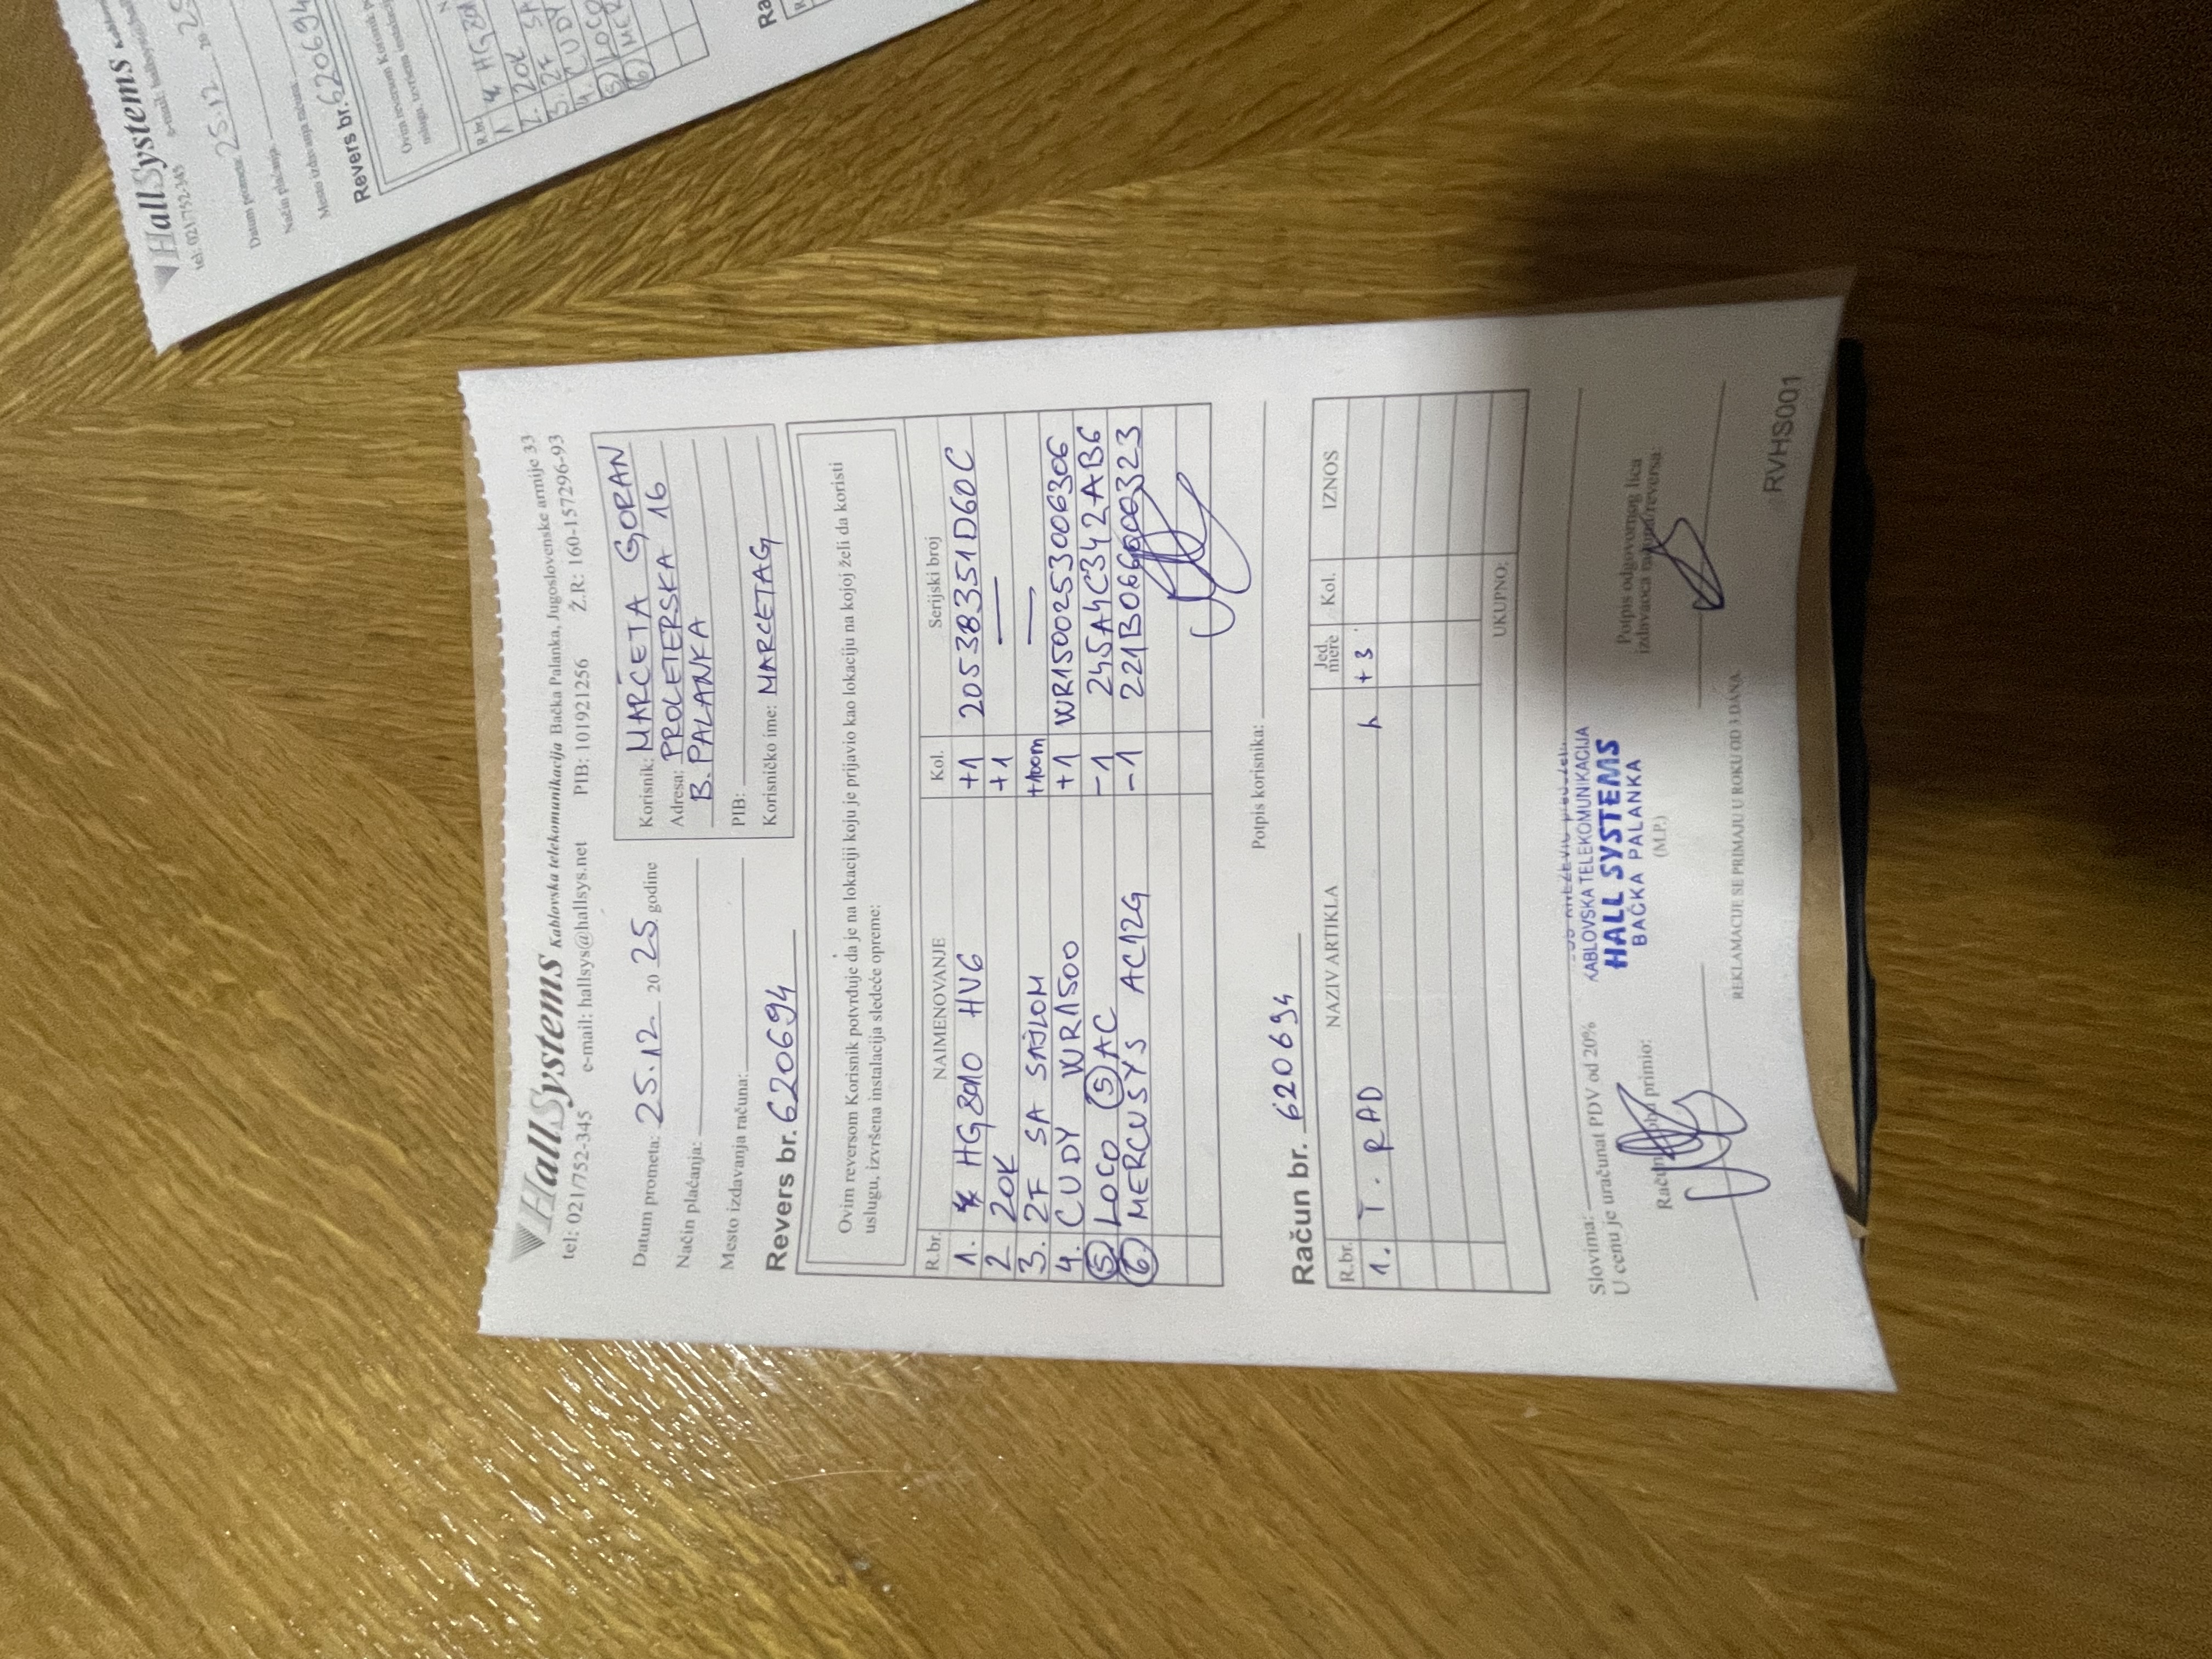 HallSystems Kablovska telekomunikacija Bačka Palanka, Jugoslovenske armije 33
tel: 021/752-345 e-mail: hallsys@hallsys.net PIB: 101921256 Ž.R: 160-157296-93
Datum prometa: 25.12. 20 25. godine
Način plaćanja:
Mesto izdavanja računa:
Korisnik: MARČETA GORAN
Adresa: PROLETERSKA 16
B. PALANKA
PIB:
Korisničko ime: MARCETAG
Revers br. 620694
Ovim reversom Korisnik potvrđuje da je na lokaciji koju je prijavio kao lokaciju na kojoj želi da koristi
uslugu, izvršena instalacija sledeće opreme:
R.br. NAIMENOVANJE Kol. Serijski broj
1. HG8010 HV6 +1 2053838351D60C
2 20K +1 —
3. 2F SA SAJLOM +100m —
4. CUDY WR1500 +1 WR1500253006306
5 LOCO 5 AC -1 245A4C342AB6
6. MERCUSYS AC12G -1
Potpis korisnika:
Račun br. 620694
R.br. NAZIV ARTIKLA Jed. mere Kol. IZNOS
1. T. RAD h +3
UKUPNO:
Slovima:
U cenu je uračunat PDV od 20%
KABLOVSKA TELEKOMUNIKACIJA
HALL SYSTEMS
BAČKA PALANKA
(M.P.)
primio:
Potpis odgovornog lica
izdavaoca računa/reversa:
REKLAMACIJE SE PRIMAJU U ROKU OD 3 DANA.
RVHS001
HallSystems
tel: 021/752-345
Datum prometa: 25.12. 20
Način plaćanja:
Mesto izdavanja računa:
Revers br. 620694
Ovim reversom Korisnik
R.br.
1 HG801
2. 20K
3. 2F SA
4. CUDY
5 LOCO
6 MER